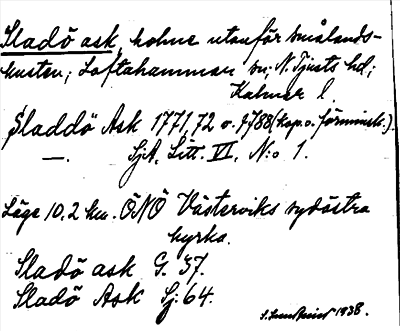 Sladö ask, holme utanför Smålands-
kusten; Loftahammar sn; N. Tjusts hd;
Kalmar l.
Sladdö Ask 1771,72 o. 1788 (kop. o. förminsk.).
—. SjA, Litt. VI, N:o 1.
Läge 10,2 km. ÖNÖ Västerviks sydöstra
kyrka.
Sladö ask G. 37.
Sladö Ask Sj. 64.
1938.